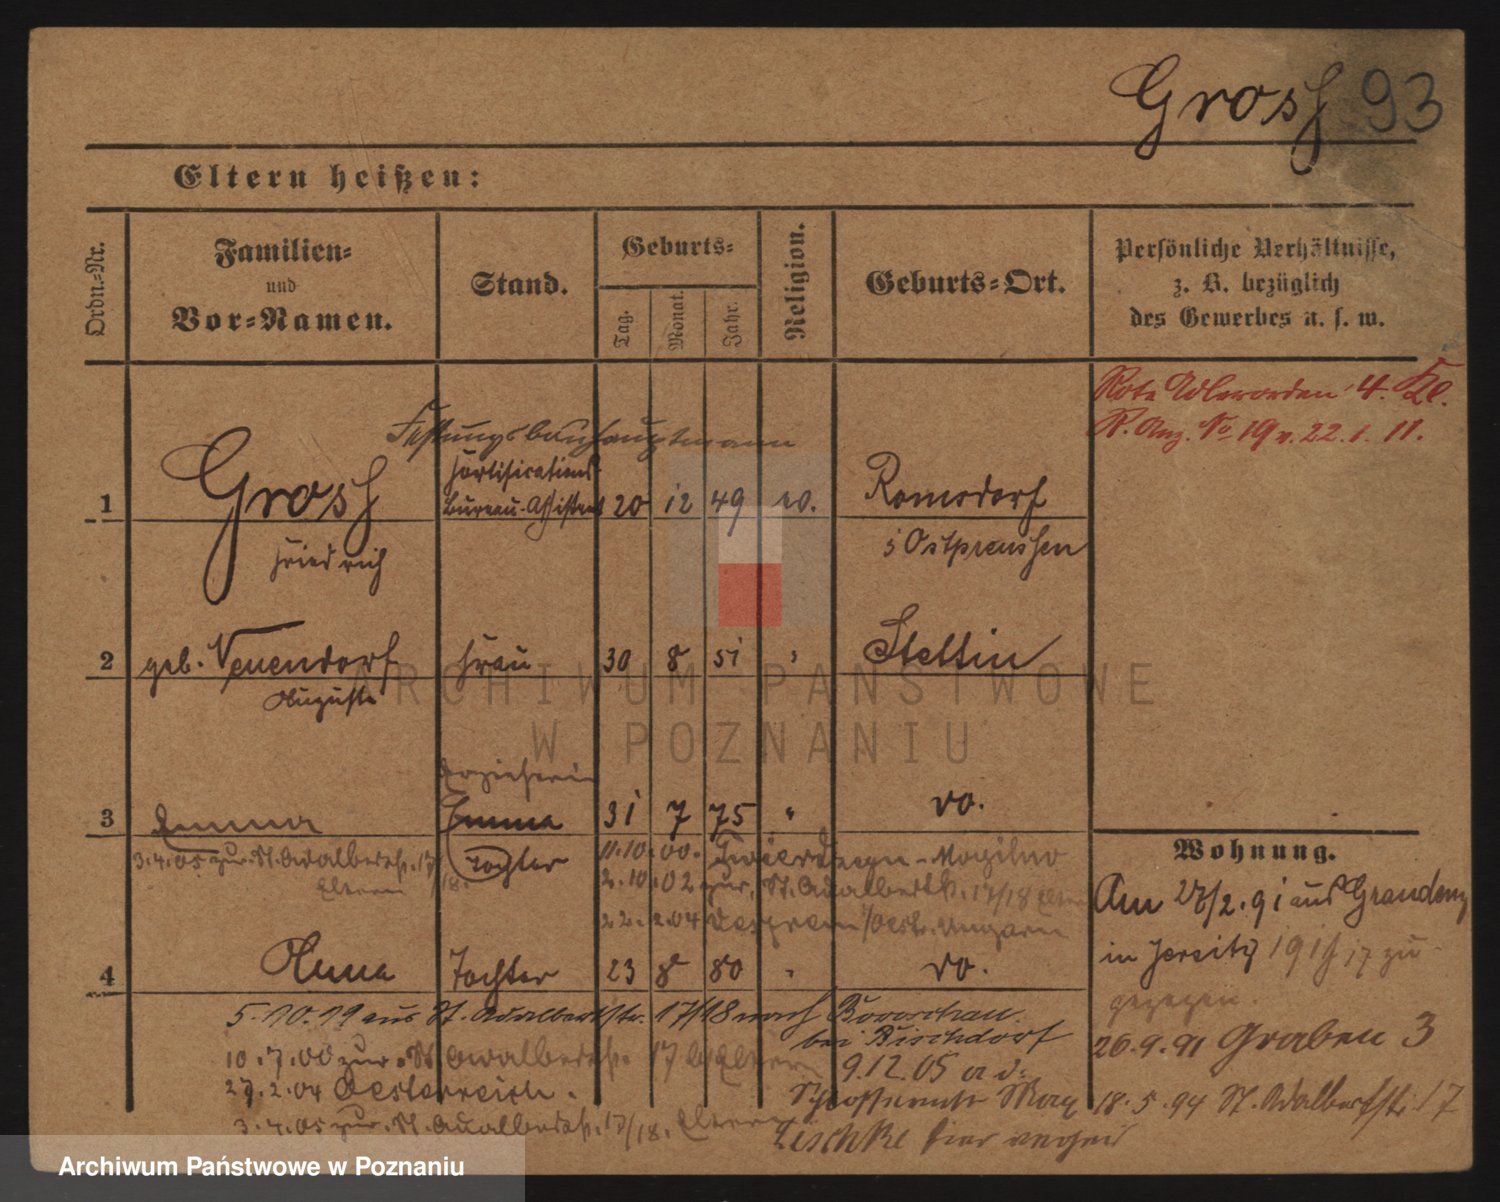 Grosz 93
Eltern heißen:
Ordn.-Nr.
Familien-
und
Vor-Namen.
Stand.
Geburts-
Tag.
Monat.
Jahr.
Religion.
Geburts-Ort.
Persönliche Verhältnisse,
z. B. bezüglich
des Gewerbes u. s. w.
Rote Adlerorden 4. Kl.
R. Anz. No 19 v. 22. 1. 11.
Festungsbauhauptmann
1 Grosz Fortifications
Bureau-Assistent 20 12 49 Romsdorf
Friedrich i Ostpreussen
2 geb. Neuendorf Frau 30 8 51 " Stettin
Auguste
Erzieherin
3 Emma Emma 31 7 75 " do.
Tochter
3.4.05 zur. St. Adalbertstr. 17/18.
Eltern
11.10.00. Twierdzyn - Mogilno
2.10.02 zur. St. Adalbertstr. 17/18 Eltern
22.2.04 Oestr. Ungarn
4 Anna Tochter 23 8 80 " do.
5.10.99 aus St. Adalbertstr. 17/18 nach
bei Bischdorf
10.7.00 zur. St. Adalbertstr. 17 Eltern
9.12.05
27.2.04 Oesterreich.
3.4.05 zur. St. Adalbertstr. 17/18. Eltern
Zischke hier
Wohnung.
Am 27/2.91 aus Graudenz
in Jersitz zu
gezogen.
26.9.91 Graben 3
18.5.94 St. Adalbertstr. 17
ARCHIWUM PAŃSTWOWE
W POZNANIU
Archiwum Państwowe w Poznaniu